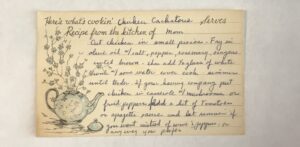 Here's what's cookin' Chicken Cacciatore Serves
Recipe from the kitchen of Mom
Cut chicken in small pieces. Fry in
olive oil & salt, pepper, rosemary, oregano
until brown. then add 1/2 glass of white
wine & some water cover cook simmer
until tender. if your having company put
chicken in casserole & mushrooms or
fried peppers. Add a bit of tomatoes
or spagette sauce and let simmer if
you want instead of wine & peppers or
any way you prefer